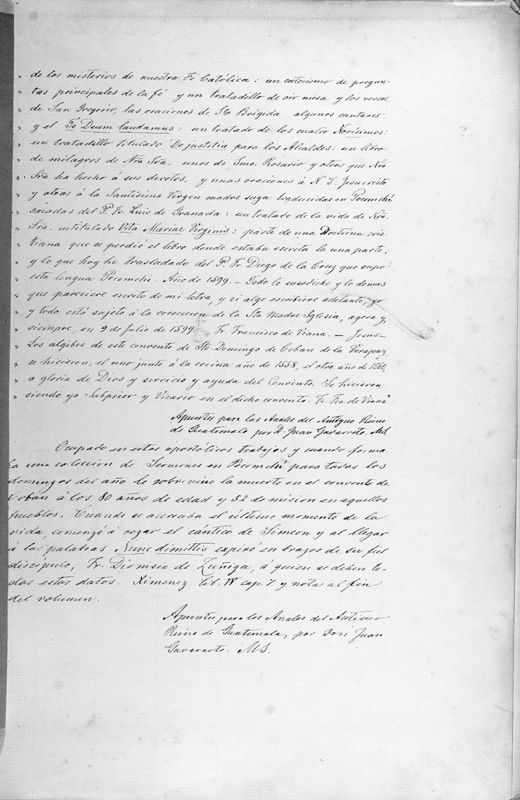 " de los misterios de nuestra Fe Católica: un catecismo de pregun-
" tas principales de la fé y un tratadillo de oir misa y los versos
" de San Gregorio, las oraciones de Sta Brigida algunos cantares
" y el Te Deum laudamus: un tratado de los cuatro Novísimos:
" un tratadillo titulado De justitia para los Alcaldes: un libro
" de milagros de Nra Sra. unos de Smo. Rosario y otros que Nra
" Sra ha hecho á sus devotos, y unas oraciones á N. S. Jesucristo
" y otras á la Santísima Virgen madre suya traducidas en Pocomchí
" sacadas del P. Fr. Luis de Granada: un tratado de la vida de Nra
" Sra. intitulado Vita Mariae Virginis: parte de una Doctrina cris-
" Viana que se perdió el libro donde estaba escrita la una parte;
" y lo que hoy he trasladado del P. Fr. Diego de la Cruz que supo
" esta lengua Pocomchí. Año de 1599. — Todo lo susodicho y lo demas
" que pareciere escrito de mi letra, y si algo escribiere adelante, yo
" y todo está sujeto á la correccion de la Sta Madre Iglesia, agora y
" siempre, en 9 de Julio de 1599. Fr. Francisco de Viana. — Jesus—
" Los algibes de este convento de Sto Domingo de Coban de la Verapaz,
" se hicieron, el uno junto á la cocina año de 1558, el otro año de 1560,
" á gloria de Dios y servicio y ayuda del Convento. Se hicieron
" siendo yo Subprior y Vicario en el dicho convento. Fr. Fco. de Viana"
Apuntes para los Anales del Antiguo Reino
de Guatemala por D. Juan Gavarrete. MS.
Ocupado en estos apostólicos trabajos y cuando forma
ba una coleccion de Sermones en Pocomchí para todos los
domingos del año le sobrevino la muerte en el convento de
Cobán á los 80 años de edad y 52 de mision en aquellos
pueblos. Cuando se acercaba el último momento de la
vida, comenzó á rezar el cántico de Simeon y al llegar
á las palabras Nunc dimittis espiró en brazos de su fiel
discípulo, Fr. Dionisio de Zuñiga, á quien se deben to-
dos estos datos. Ximenez lib. IV cap. 7 y notas al fin
del volumen.
Apuntes para los Anales del Antiguo
Reino de Guatemala, por Don Juan
Gavarrete. MS.